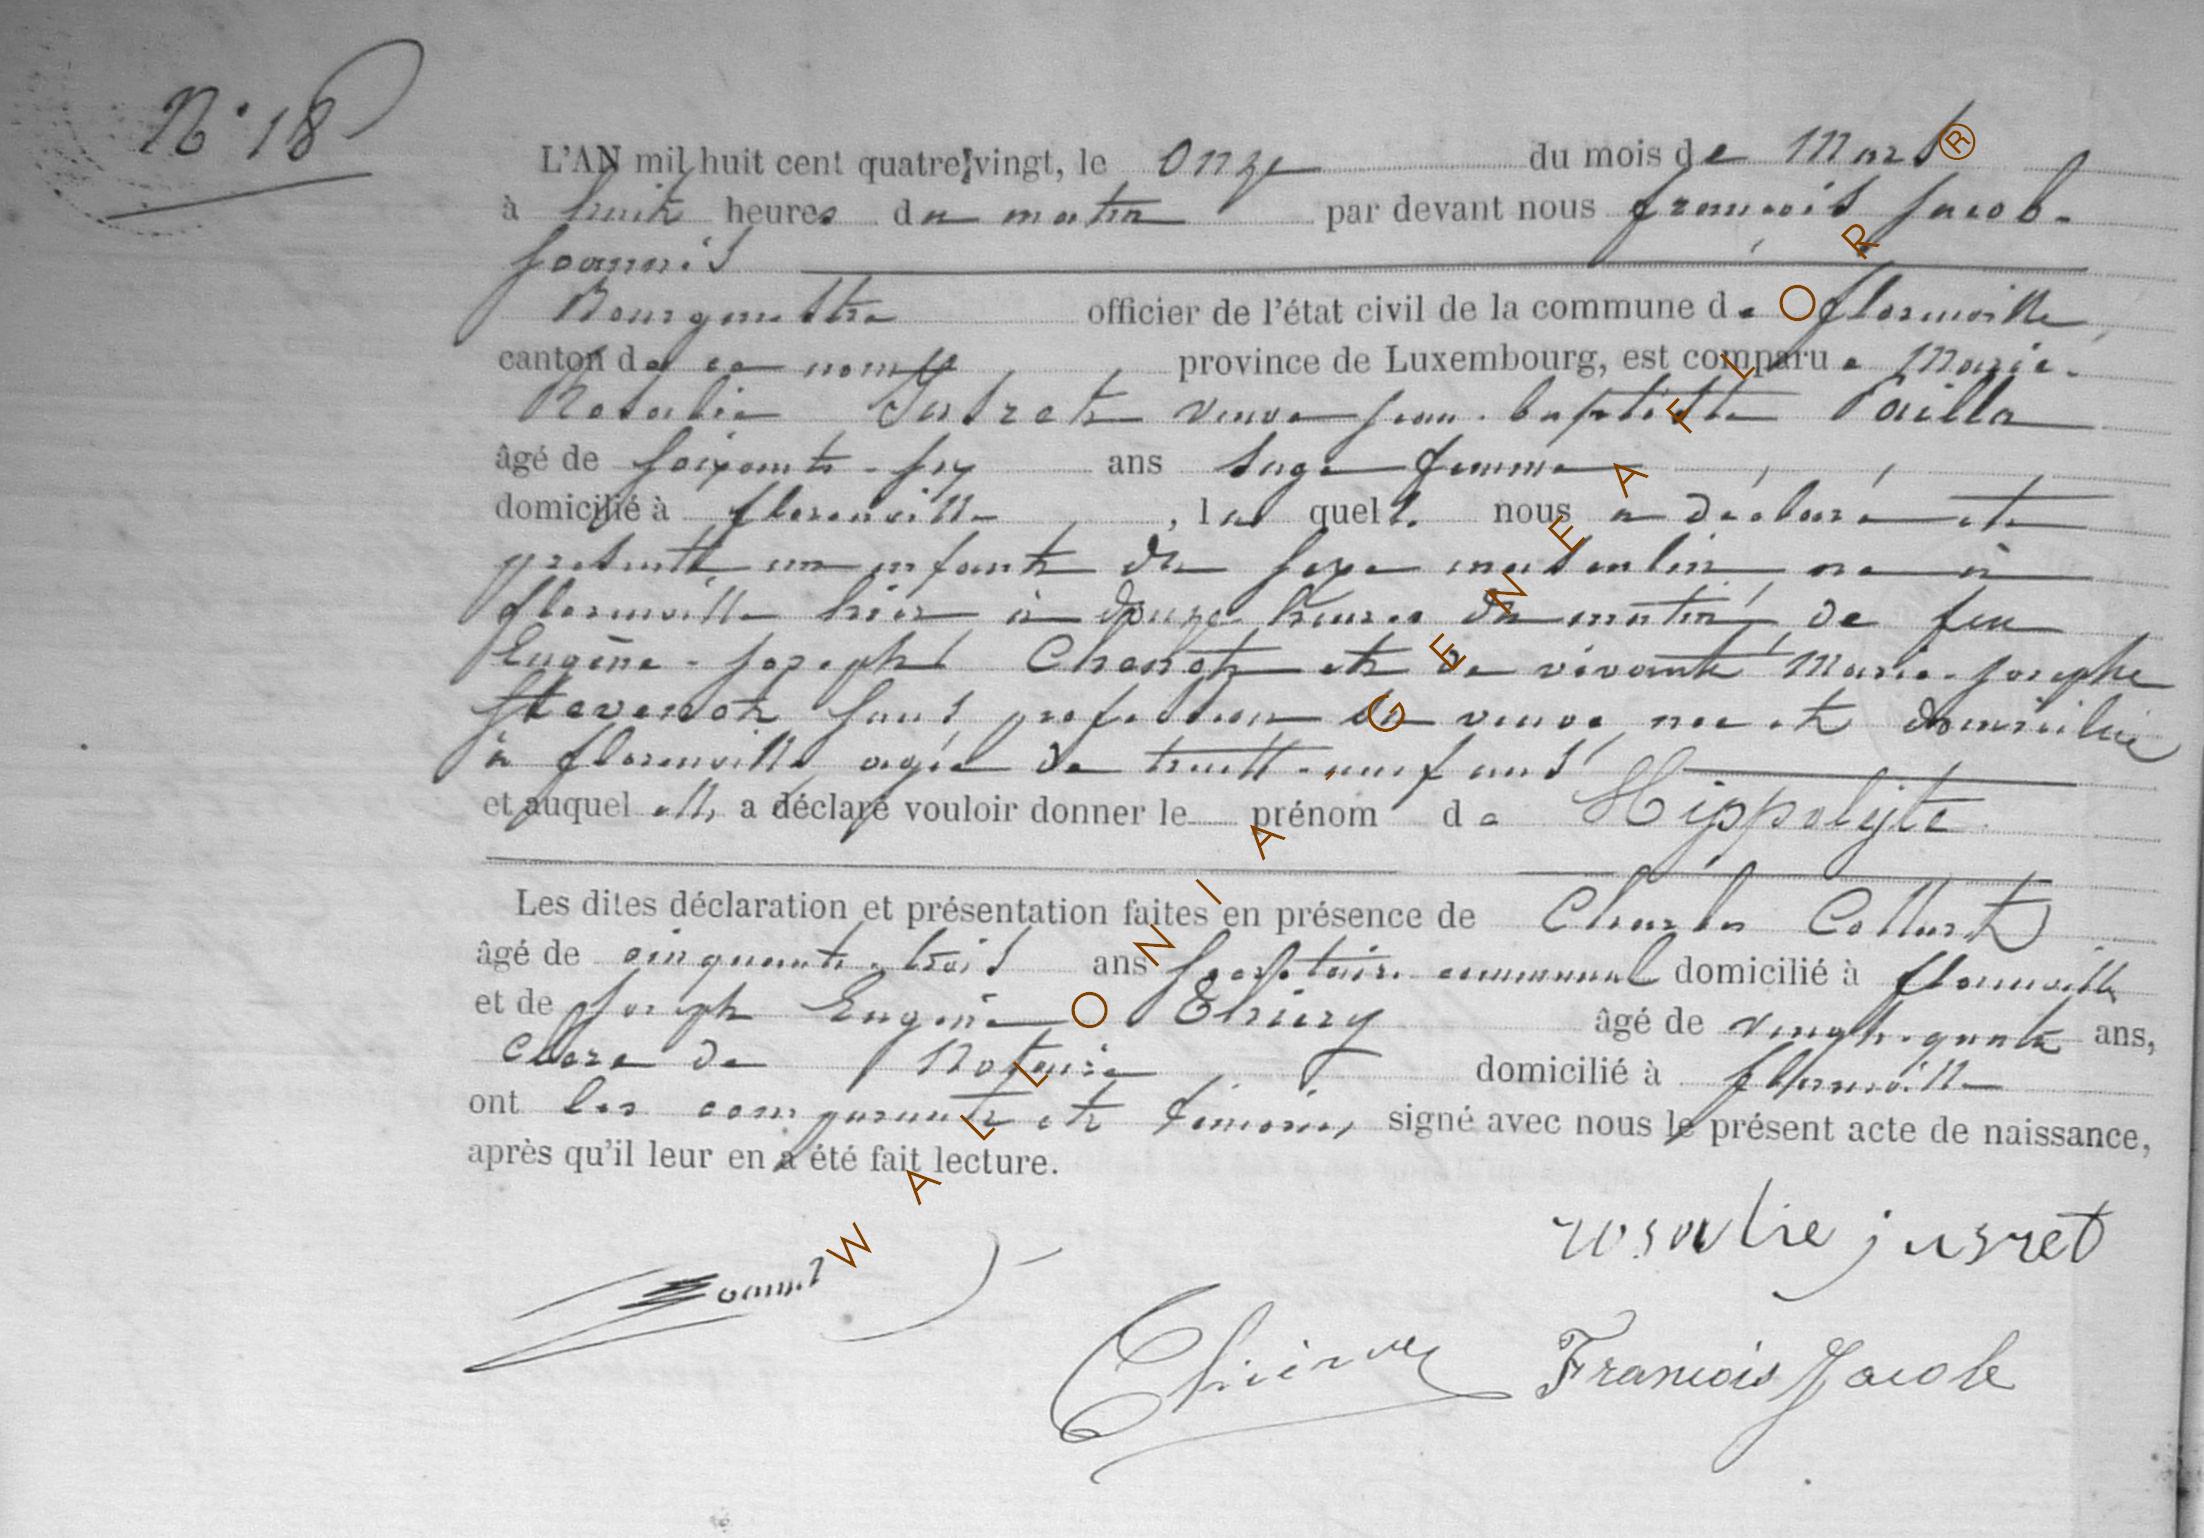 N° 18
L'AN mil huit cent quatre-vingt, le onze du mois de Mars
à huit heures du matin par devant nous françois Jacob-
Joannis
Bourgmestre officier de l'état civil de la commune de florenville
canton de ce nom province de Luxembourg, est comparue Marie-
Rosalie Jusret veuve jean-baptiste Pailla
âgé de soixante-six ans sage femme
domicilié à florenville, laquelle nous a déclaré et
présenté un enfant du sexe masculin né à
florenville hier à douze heures du matin, de feu
Eugène-joseph Chenot et de vivante Marie-josephe
Stevenot sans profession sa veuve née et domiciliée
à florenville agée de trente-neuf ans
et auquel elle a déclaré vouloir donner le prénom de Hippolyte
Les dites déclaration et présentation faites en présence de Charles Collart
âgé de cinquante-trois ans secrétaire communal domicilié à florenville
et de joseph Eugène Thiery âgé de vingt-quatre ans,
clerc de Notaire domicilié à florenville
ont les comparants et témoins signé avec nous le présent acte de naissance,
après qu'il leur en a été fait lecture.
rosalie jusret
Joannis
Thiery François Jacob
WALLONIA GENEAFLOR®